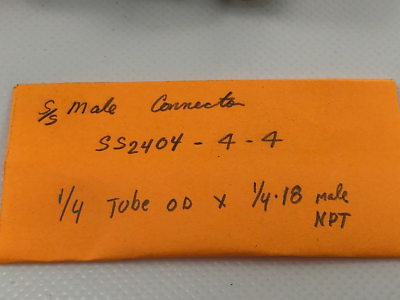 S/S Male Connector
SS2404 - 4 - 4
1/4 Tube OD x 1/4-18 male
NPT